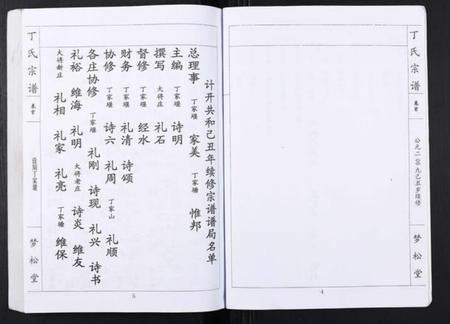 丁氏宗谱
卷首
公元二零零九己丑岁续修
梦松堂
4
计开共和己丑年续修宗谱谱局名单
总理事 丁家堰 家美 丁家堰 惟邦
主编 丁家堰 诗明
撰写 大蒋庄 礼石
督修 丁家堰 经水
财务 丁家堰 礼清 诗颂
协修 丁家堰 诗六 礼周 丁家山 礼顺
各庄协修 丁家堰 礼刚 诗现 礼兴 诗书
礼裕 维海 礼明 大蒋老庄 诗炎 维友
大蒋新庄 礼相 礼家 礼亮 丁家塘 维保
丁氏宗谱
卷首
梦松堂
5